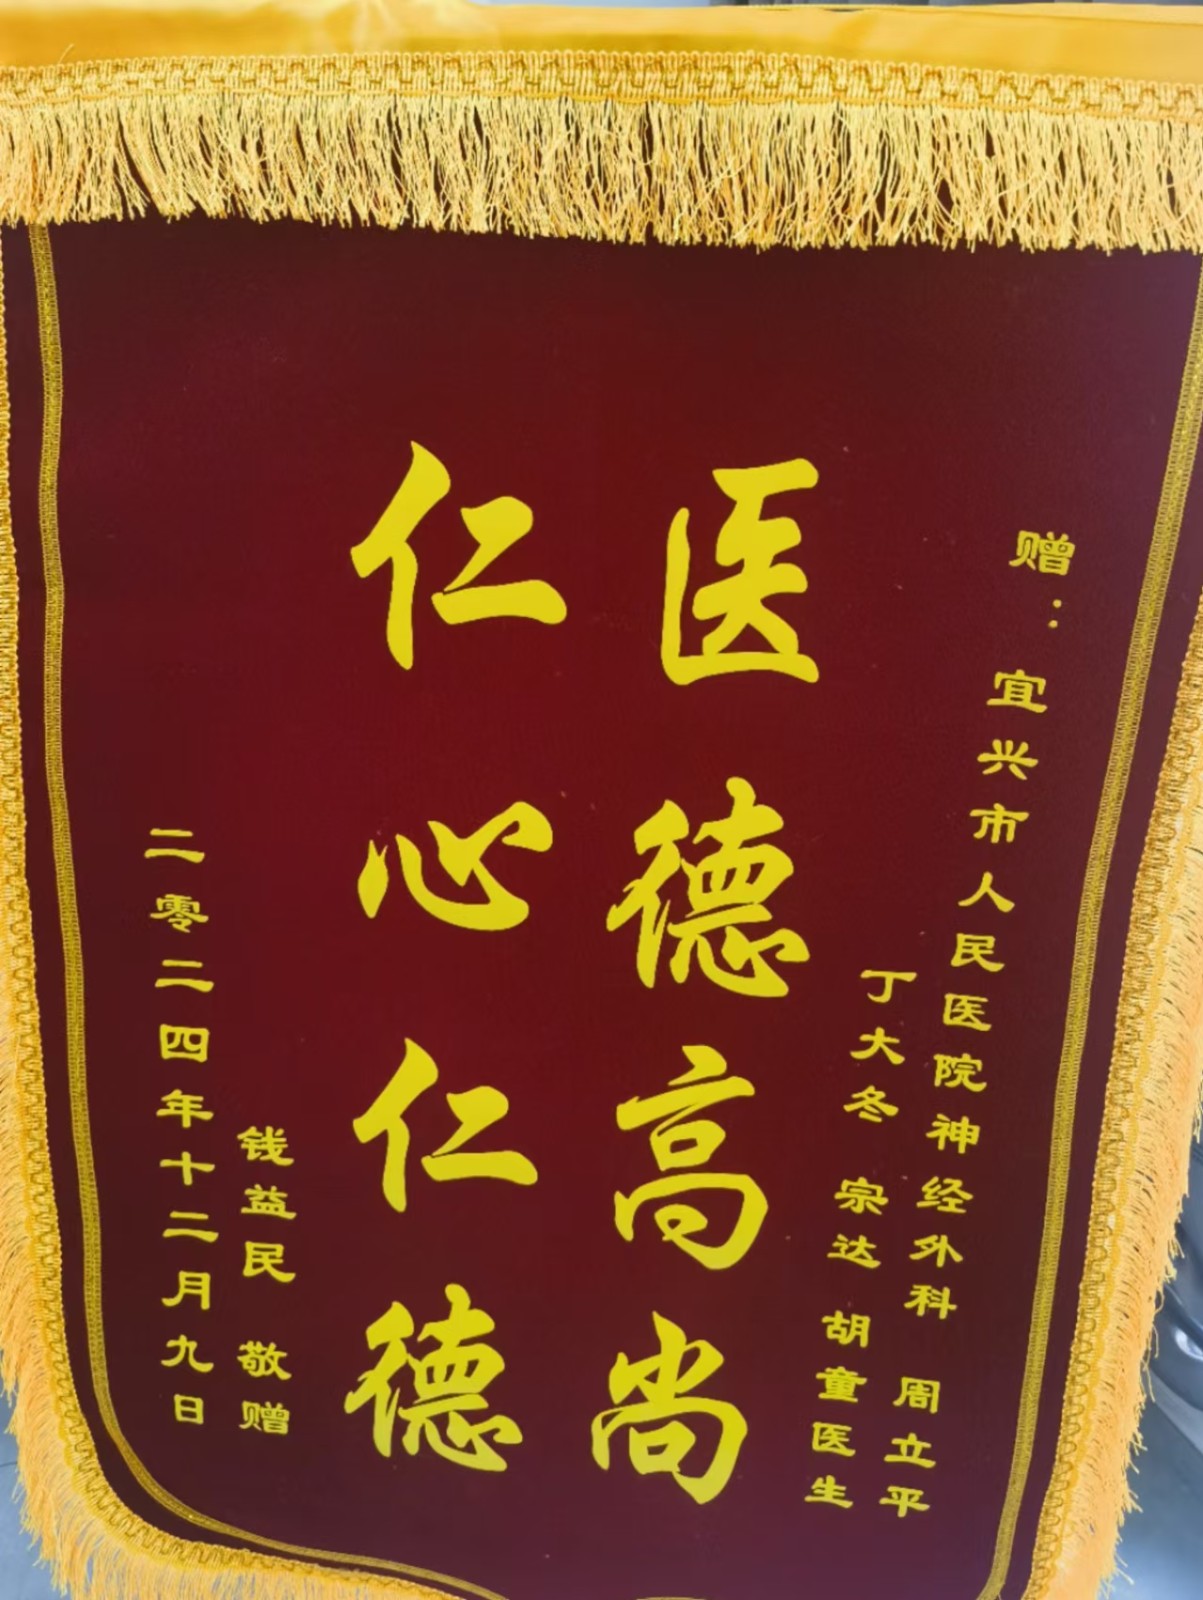 赠：宜兴市人民医院神经外科 周立平
丁大冬 宗达 胡童医生
医德高尚
仁心仁德
钱益民 敬赠
二零二四年十二月九日